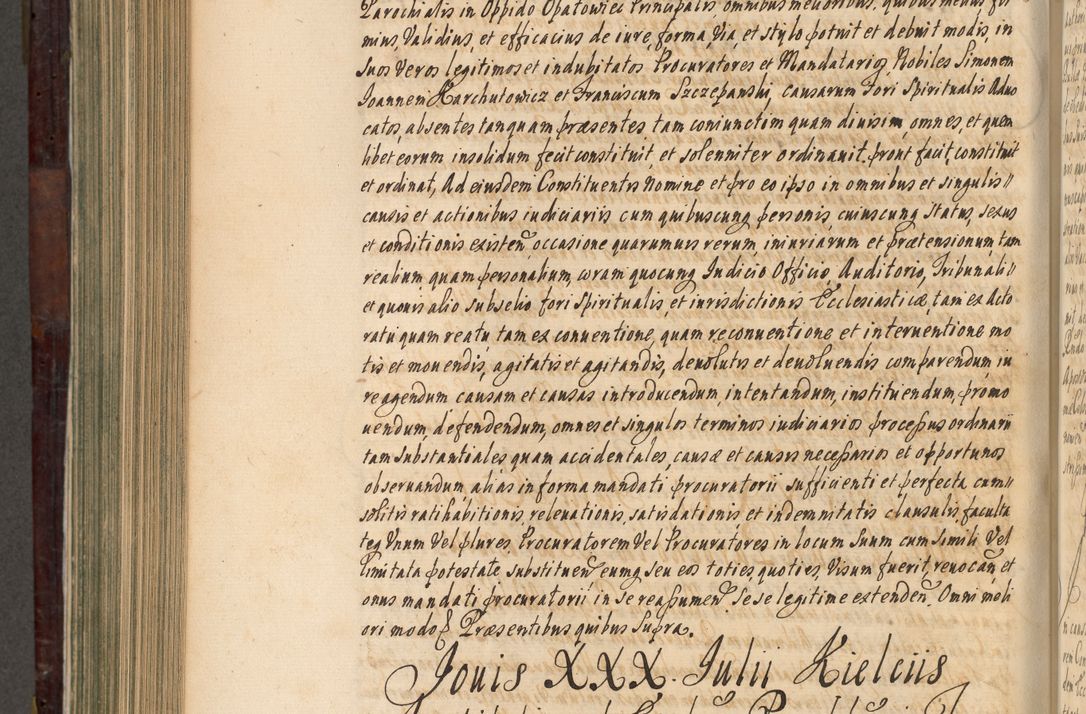 Parochialis in Oppido Opatowiec Principalis omnibus melioribus, quibus melius fir
mius, Validius, et efficacius de iure, forma, Via, et stylo potuit et debuit modis, in
Suos Veros legitimos et indubitatos Procuratores et Mandatarios, Nobiles Simonem
Joannem Karchutowicz et Franciscum Szczepanski, causarum Fori Spiritualis Aduo
catos, absentes tanquam præsentes, tam coniunctim quam diuisim, omnes, et quem
libet eorum insolidum fecit constituit, et solenniter ordinauit, prout facit, constituit
et ordinat, Ad eiusdem Constituentis Nomine et pro eo ipso in omnibus et singulis //
causis et actionibus iudiciariis cum quibuscunq personis, cuiuscunq Status, sexus
et conditionis existen, occasione quarumuis rerum, iniuriarum et prætensionum, tam
realium quam personalium, coram quocunq Judicio Officio, Auditorio, Tribunali //
et quouis alio subselio fori Spiritualis, et iurisdictionis Ecclesiasticæ, tam ex Acto
ratu quam reatu, tam ex conuentione, quam reconuentione et interuentione mo
tis et mouendis, agitatis et agitandis, deuolutis et deuoluendis comparendum, in
re agendum causam et causas introducendum, intentandum, instituendum, promo
uendum, defendendum, omnes et singulos terminos iudiciarios processus ordinarii
tam substantiales quam accidentales, causæ et causis necessarios et opportunos
obseruandum, alias in forma mandati procuratorii sufficienti et perfecta cum //
solitis ratihabitionis, releuationis, satisdationis et indemnitatis clausulis, faculta
teq Vnum Vel plures Procuratorem Vel Procuratores in locum Suum cum Simili Vel
limitata potestate substituen, eumq Seu eos toties, quoties, Visum fuerit, reuocan, et
onus mandati procuratorii in se reassumen, Sese legitime extenden. Omni meli
ori modo Præsentibus quibus Supra.
Jouis XXX. Julii Kielciis